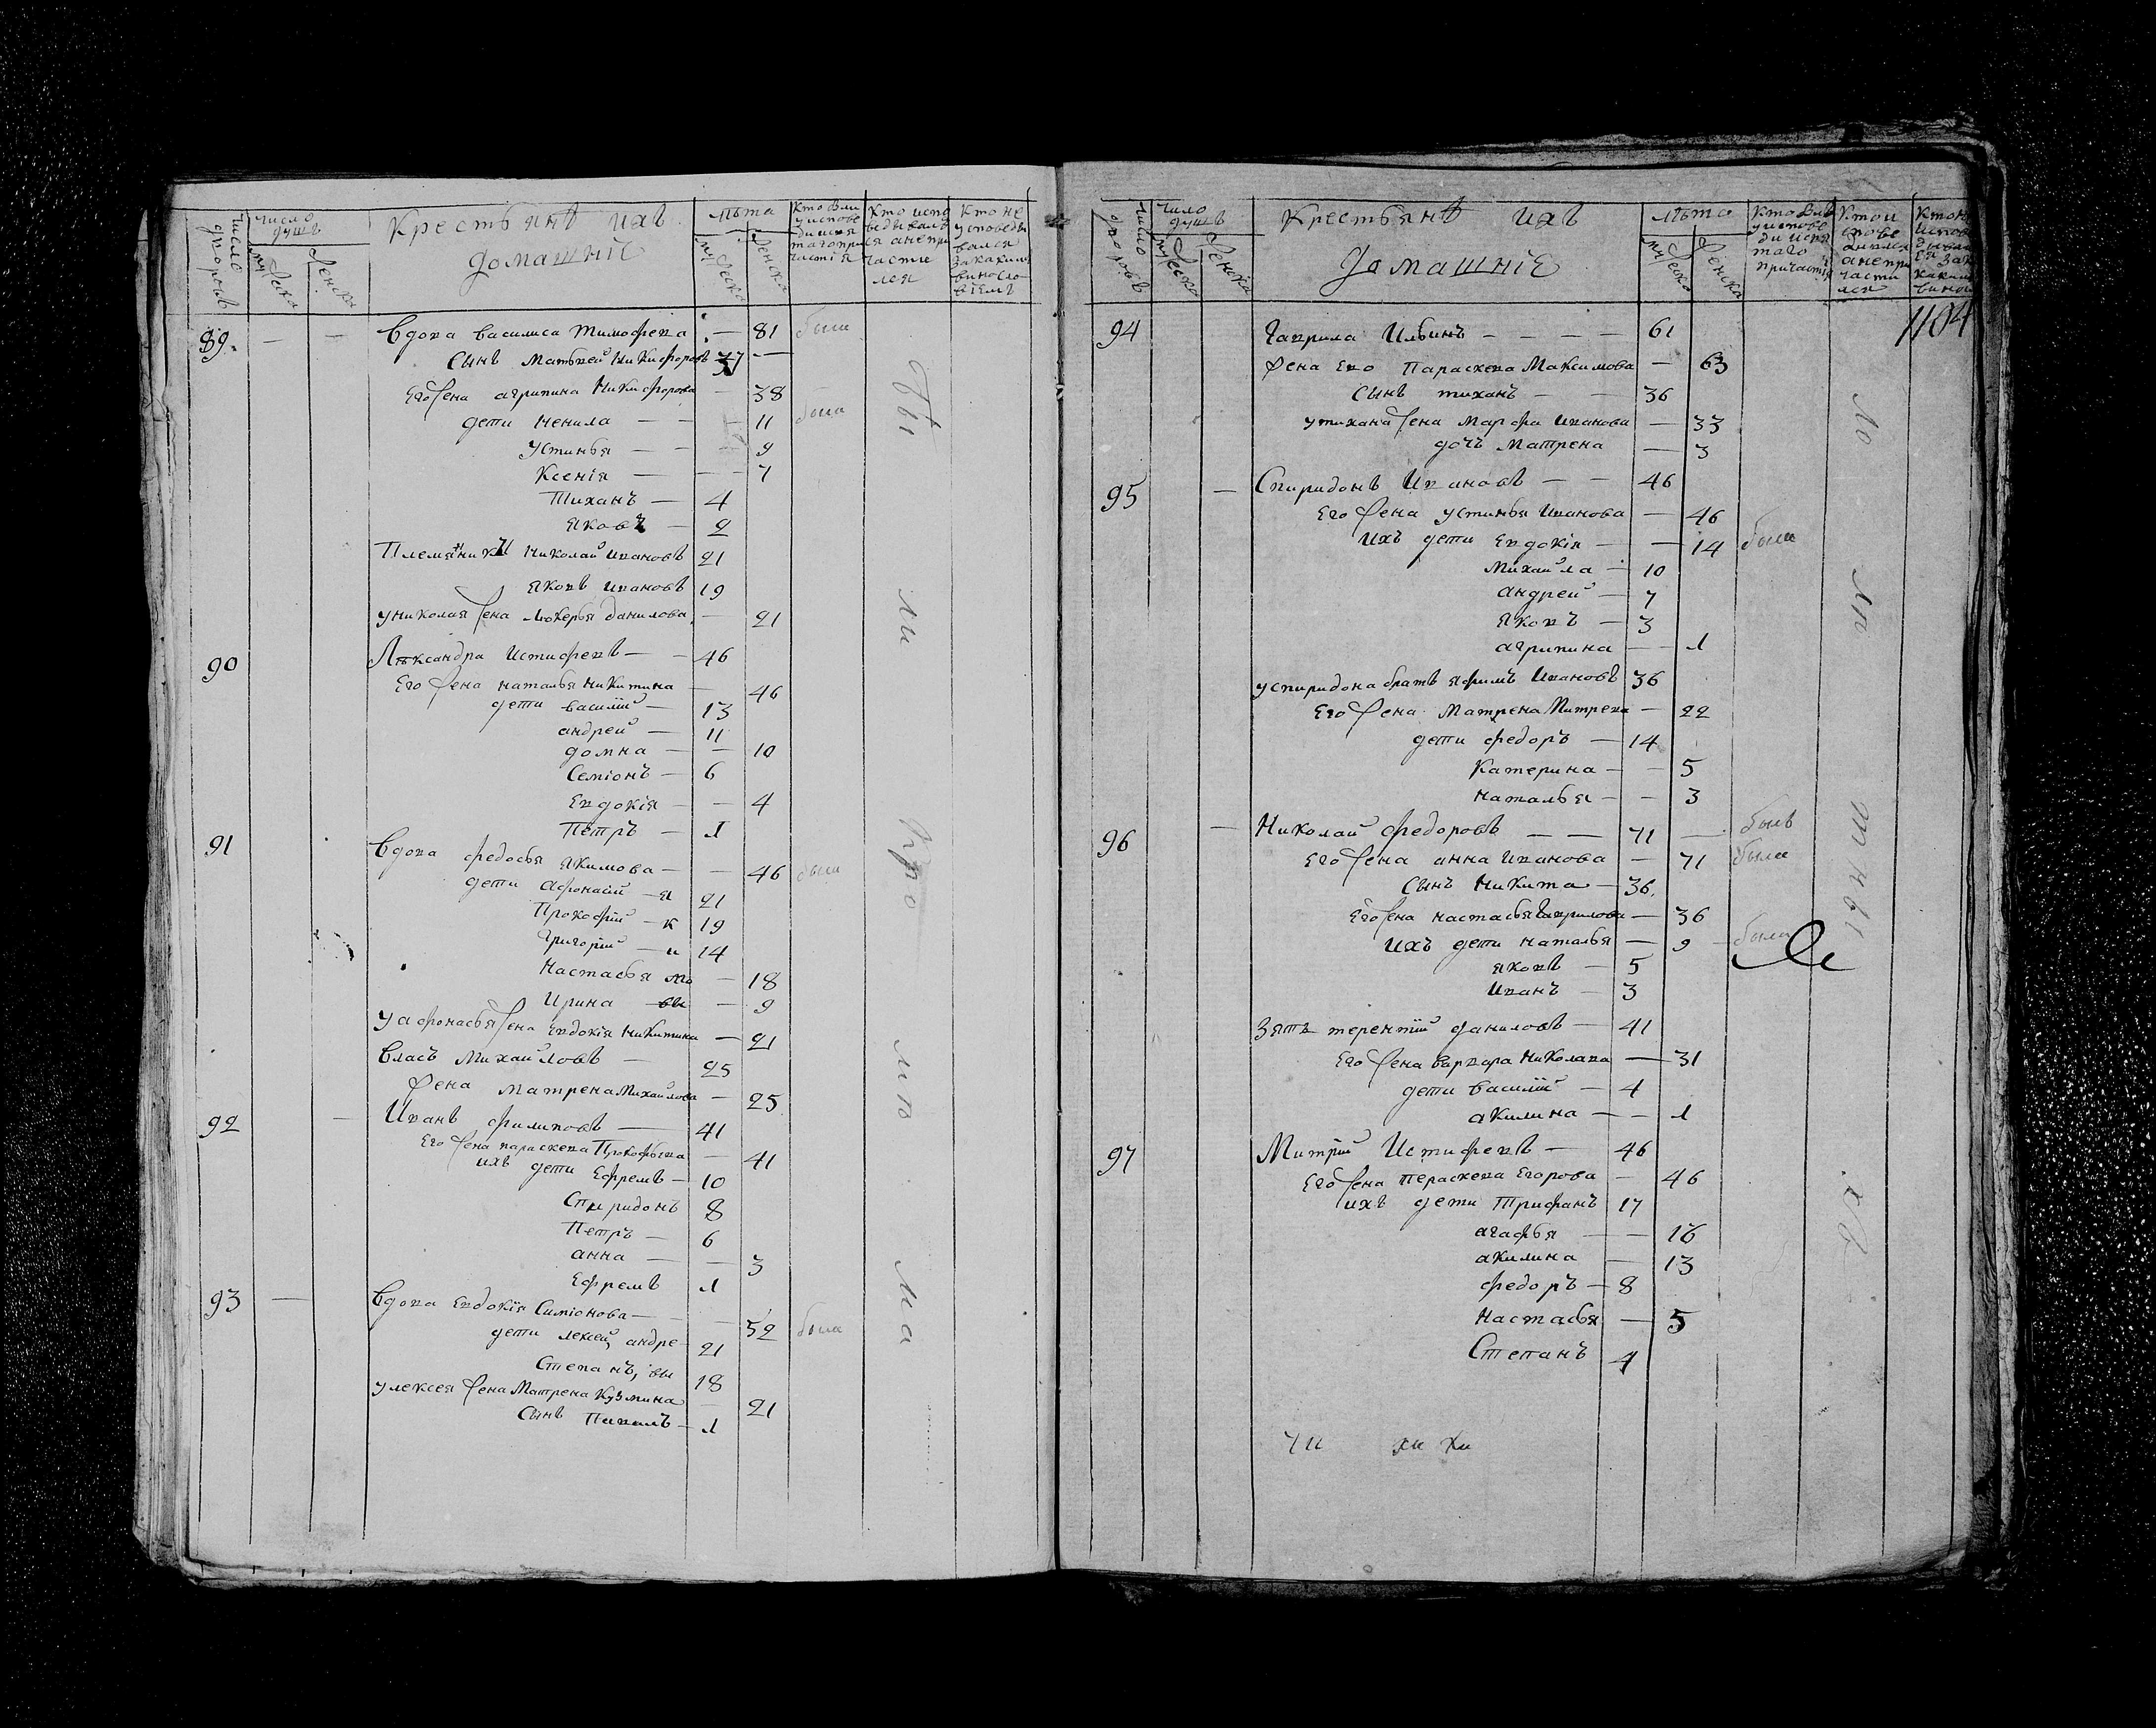 число дворовъ
число душъ
муска
женска
Крестьянъ ихъ
домашніе
лѣта
муска
женска
Кто были у исповеди и святаго причастія
Кто исповедывался а не причастился
Кто не исповедывался
89. Вдова василиса тимофева — 81 была
сынъ Матвей Никифоровъ 37 —
Его жена агрипина Никифорова — 38
дети Ненила — — 11 была
Устинья — — 9
Ксенія — — 7
Тиханъ — 4
яковъ — 2
Племянники Николай ивановъ 21
яковъ ивановъ 19
у николая жена лукерья данилова — 21
90 Александра Истифевъ — 46
Его жена наталья никитина — 46
дети василій — 13
андрей — 11
домна — — 10
Семіонъ — 6
Евдокія — — 4
Петръ — 1
91 Вдова федосья якимова — — 46 была
дети афонасій — я 21
Прокофій — к 19
Григорій — и 14
Настасья мо — 18
Ирина — вы — 9
у афонасья жена евдокія никитина — 21
власъ Михайловъ — 25
жена матрена Михайлова — 25
92 — Иванъ филиповъ — 41
Его жена параскева Прокофьева — 41
ихъ дети Ефремъ — 10
Спиридонъ 8
Петръ — 6
анна — — 3
Ефремъ 1
93 — Вдова евдокія Симіонова — — 52 была
дети лексей андре 21
Степанъ, вы 18
у лексея жена Матрена Кузмина — 21
сынъ Павилъ — 1
число дворовъ
число душъ
муско
женска
Крестьянъ ихъ
домашніе
лѣто
муско
женска
1104
94 Гаврила Ильинъ — — — — 61
жена Его Параскева Максимова — 63
сынъ тиханъ — — 36
у тихана жена марфа иванова — 33
дочь Матрена — 3
95 — Спиридонъ Ивановъ — — 46
Его жена устинья иванова — 46
ихъ дети Евдокія — — 14 была
Михайла — 10
андрей — 7
яковъ — 3
агрипина — — 1
у спиридона братъ яфимъ Ивановъ 36
Его жена Матрена Митрева — 22
дети федоръ — 14
Катерина — — 5
наталья — — 3
96 — Николай федоровъ — — 71 — былъ
Его жена анна иванова — 71 была
сынъ никита — 36
Его жена настасья Гаврилова — 36
ихъ дети наталья — 9 — была
яковъ — 5
иванъ — 3
зять терентій даниловъ — 41
Его жена варвара николава — 31
дети василій — 4
акилина — — 1
97 Митрій Истифевъ — 46
Его жена Пераскева Егорова — 46
ихъ дети Трифанъ 17
агафья — — 16
акилина — 13
федоръ — 8
Настасья — 5
Степанъ 4